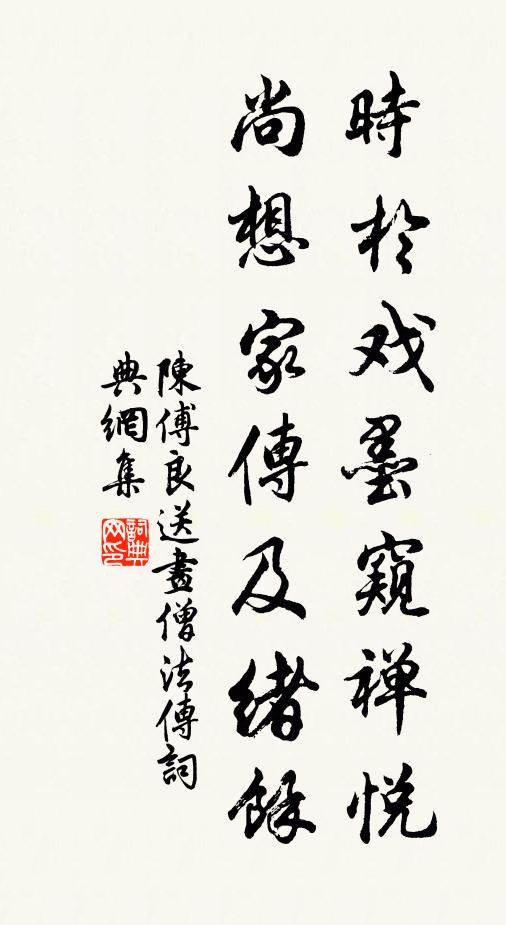 時於戏墨窺禅悦
尚想家傳及緒餘
陳傅良送畫僧法傳詞
典網集
詞典网印